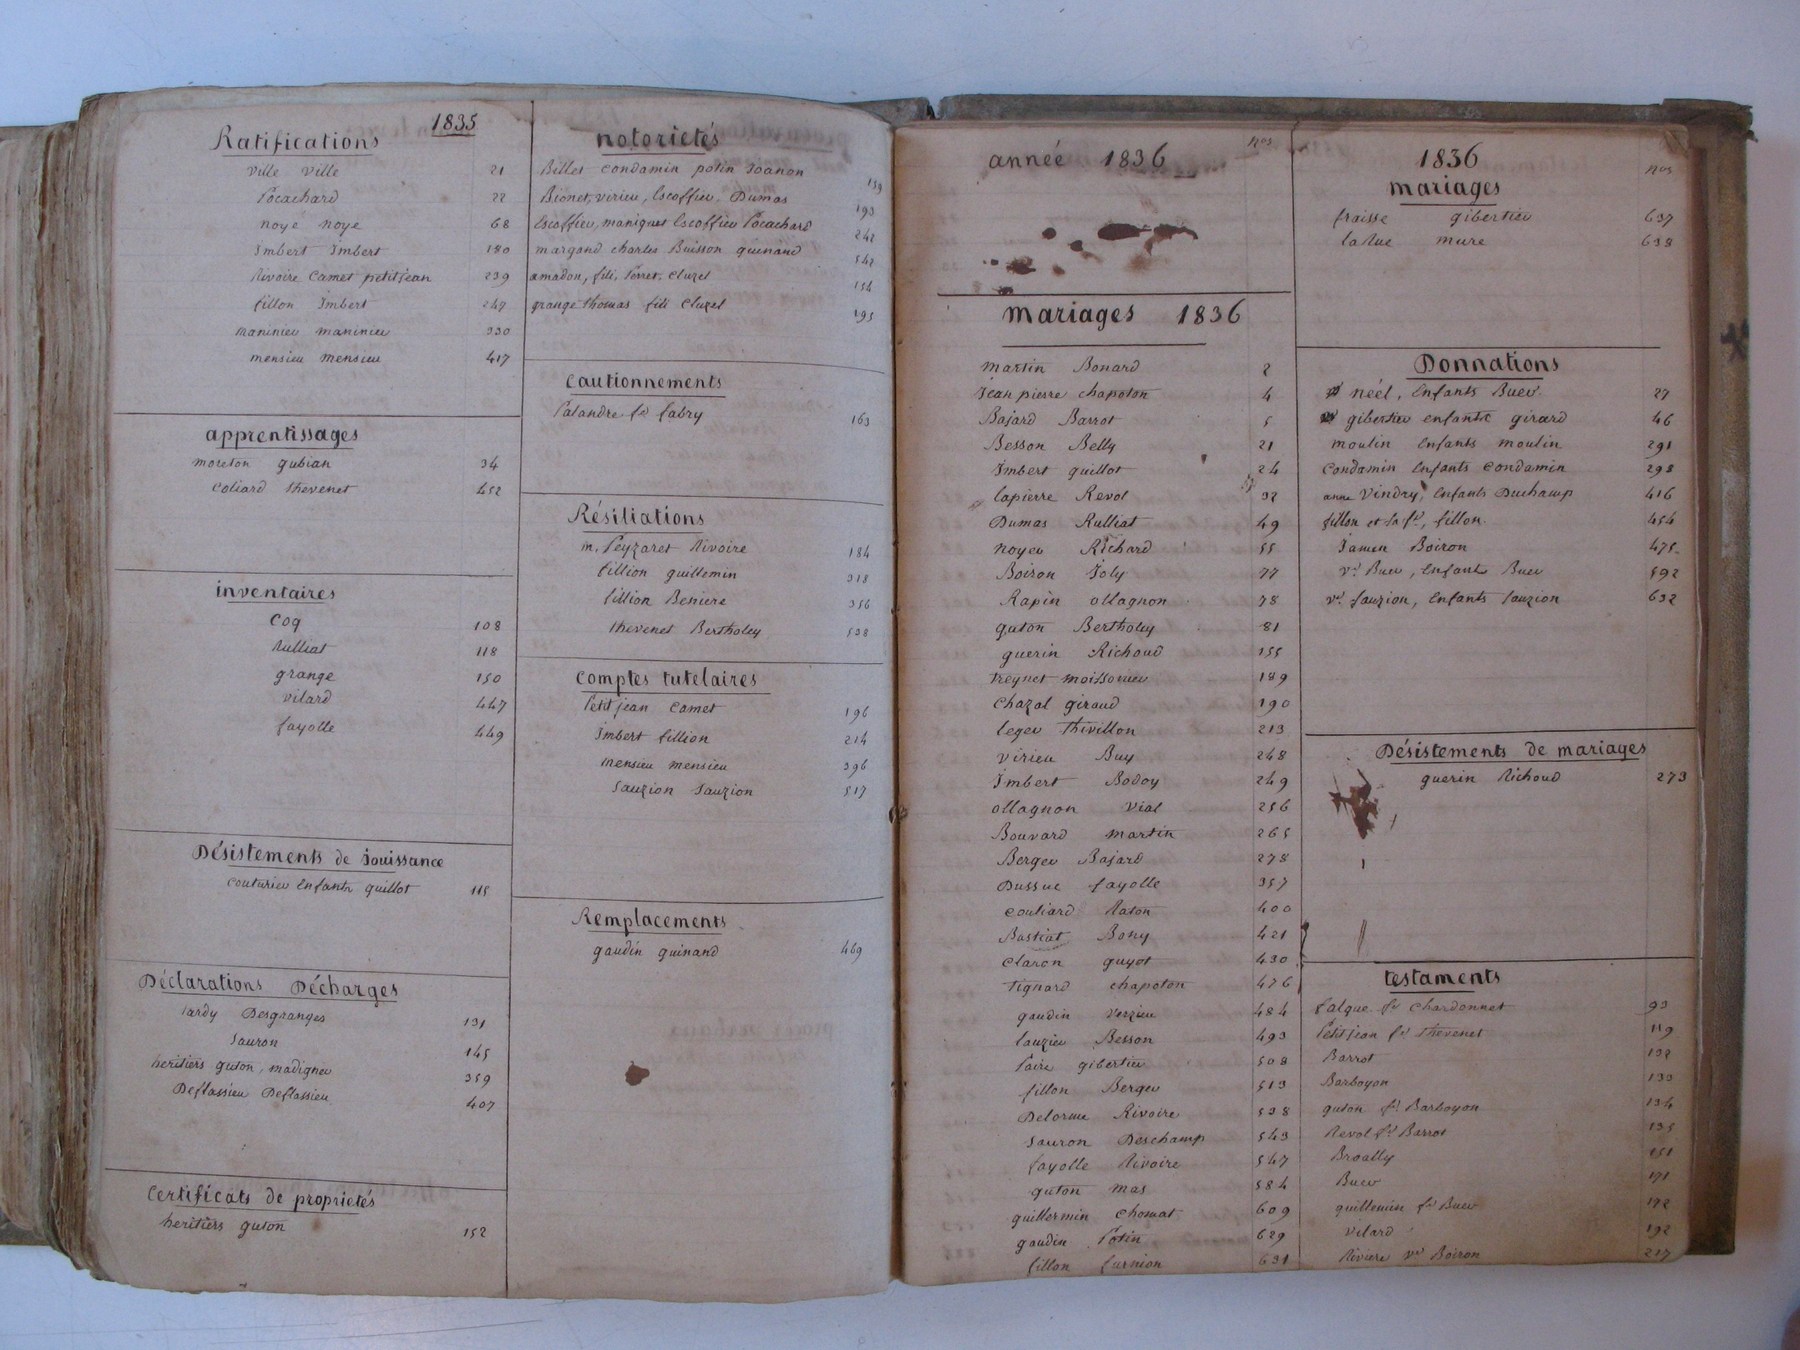 1835
Ratifications
ville ville 21
Pocachard 22
noyé noye 68
Imbert Imbert 180
Rivoire Camet petitjean 239
fillon Imbert 249
maninieu maninieu 330
mensieu mensieu 417
apprentissages
moreton gubian 34
Coliard thevenet 452
inventaires
Coq 108
Rulliat 118
grange 150
vilard 447
fayolle 449
Désistements de jouissance
Couturieu Enfants guillot 115
Déclarations Décharges
tardy Desgranges 131
Sauron 145
heritiers guton, madigneu 359
Deflassieu Deflassieu 407
Certificats de propriétés
heritiers guton 152
notorietés
Billet Condamin potin Joanon 139
Bionet, virieu, Escoffieu, Dumas 193
Escoffieu, maniquet Escoffieu Pocachard 242
margand charles Buisson guinand 542
amadou, fili, Perret, Cluzel 154
grange thomas fili Cluzel 195
Cautionnements
Palandre fe fabry 163
Résiliations
m. Peyzaret Rivoire 184
fillion guillemin 318
fillion Beniere 356
thevenet Bertholey 538
Comptes tutelaires
Petitjean Camet 196
Imbert fillion 214
mensieu mensieu 396
Sauzion Sauzion 517
Remplacements
gaudin guinand 469
année 1836 nos
mariages 1836
martin Bonard 2
Jean pierre chapoton 4
Bajard Barrot 5
Besson Belly 21
Imbert guillot 24
lapierre Revol 32
Dumas Rulliat 49
noyeu Richard 55
Boiron Joly 77
Rapin ollagnon 78
guton Bertholey 81
guerin Richoud 155
treynet moissonieu 189
Chazal giraud 190
legeu thivillon 213
virieu Buy 248
Imbert Bodoy 249
ollagnon vial 256
Bouvard martin 265
Bergeu Bajard 278
Dussuc fayolle 357
Couliard Raton 400
Bastiat Bony 421
Claron guyot 430
tignard chapoton 476
gaudin verzieu 484
lauzieu Besson 493
Paire gibertieu 508
fillon Bergeu 513
Delorme Rivoire 538
Sauron Deschamp 543
fayolle Rivoire 547
guton mas 584
guillermin Chomat 609
gaudin Potin 629
fillon furnion 631
1836 nos
mariages
fraisse gibertieu 637
laRue mure 638
Donnations
néel, Enfants Bueu 27
gibertieu enfants girard 46
moulin Enfants moulin 291
Condamin Enfants Condamin 298
anne vindry, Enfants Duchamp 416
fillon et sa fe, fillon 454
Jamen Boiron 475
ve Bueu, Enfants Bueu 592
ve Sauzion, Enfants Sauzion 632
Désistements de mariages
guerin Richoud 273
testaments
falque fe Chardonnet 93
Petitjean fe thevenet 119
Barrot 132
Barboyon 133
guton fe Barboyon 134
Revol fe Barrot 135
Broally 151
Bueu 171
guillemin fe Bueu 172
vilard 192
Riviere ve Boiron 217